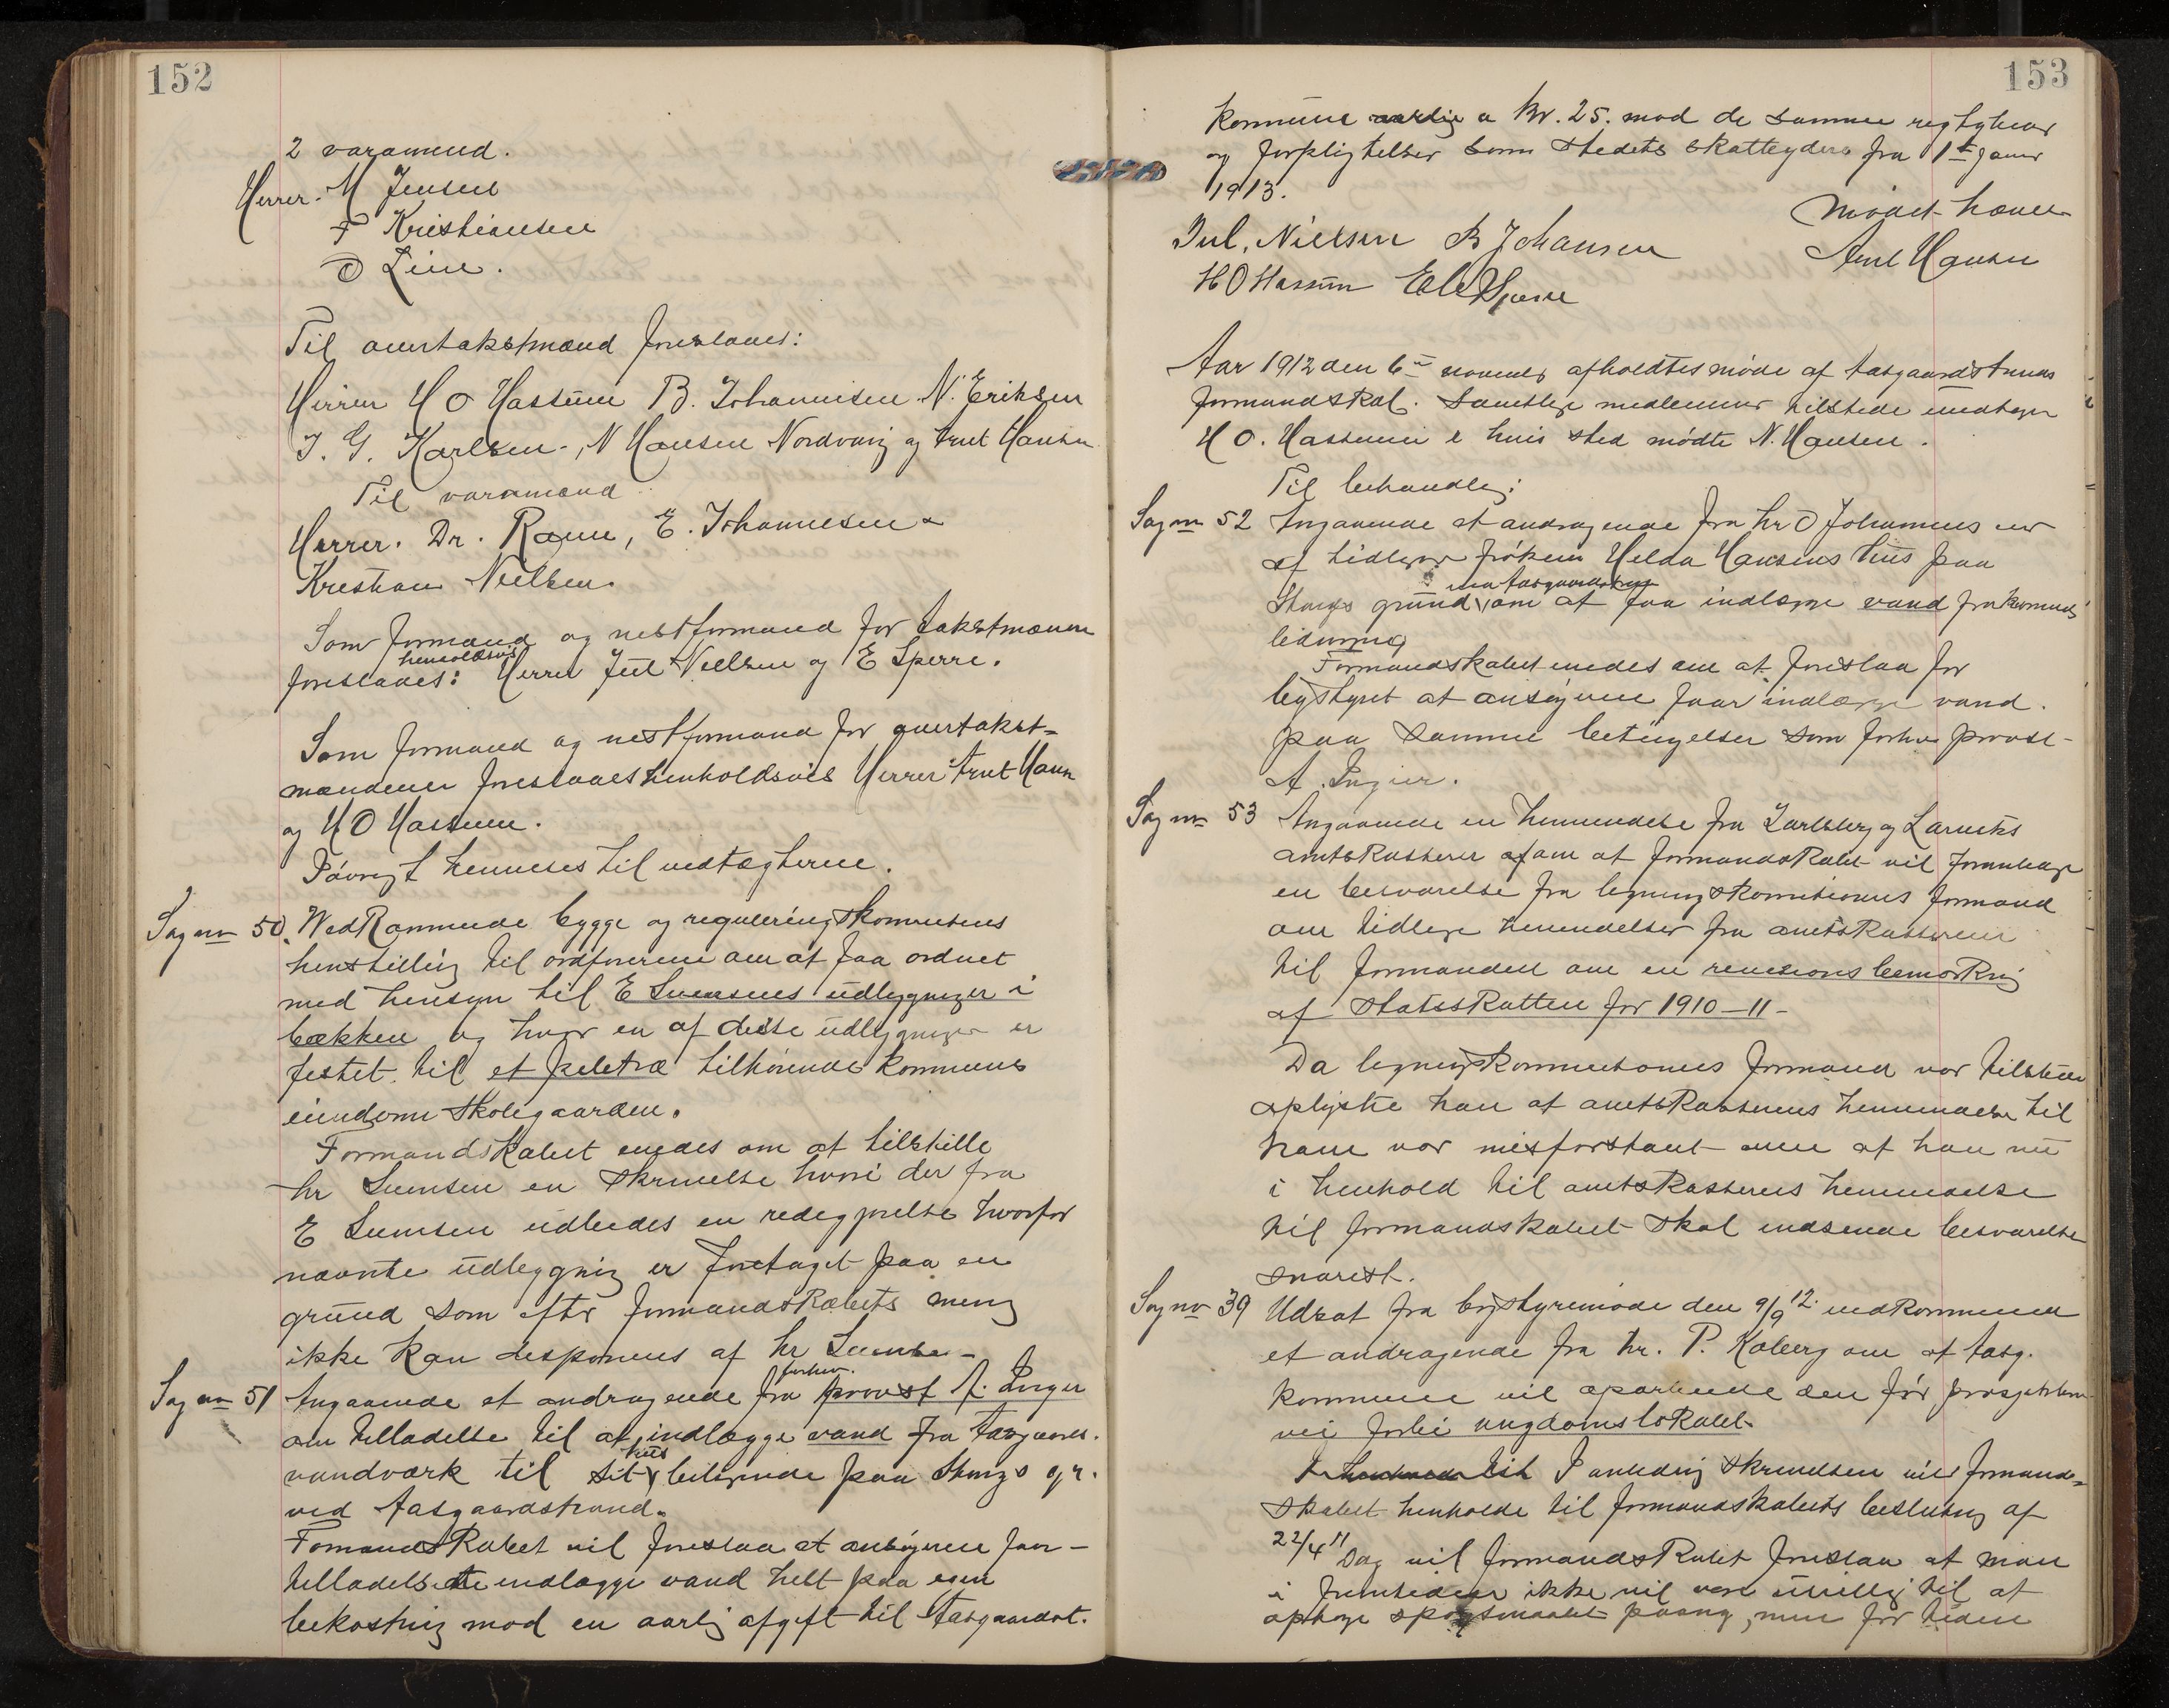 152
2 varamend.
Herrer. M Jensen
F Kristiansen
O Line.
Til overtakstmænd foreslaaes:
Herrer H O Hassum B. Johannisen N. Eriksen
J. G. Karlsen, N Hansen Nordvang og Arnt Hansen
Til varamænd
Herrer. Dr. Ramm, E. Johannesen &
Krestian Nielsen.
Som formand og nestformand for takstmænene
henholdsvis
foreslaaes: Herrer Jul Nielsen og E Sperre.
Som formand og nestformand for overtakst-
mændene foreslaaes henholdsvis Herrer Arnt Hansen
og H O Hassum.
Iøvrigt henvises til vedtægterne.
Sag no 50. Vedkommende bygge og reguleringskomitens
henstilling til ordføreren om at faa ordnet
med hensyn til E Svensens udbygninger i
bækken og hvor en af disse udbygninger er
festet til et piletræ tilhørende kommunens
eiendom Skolegaarden.
Formandskabet enedes om at tilstille
hr Svensen en skrivelse hvori der fra
E Svensen udbedes en redegjørelse hvorfor
nævnte udbygning er foretaget paa en
grund som efter formandskabets mening
ikke kan desponeres af hr Svensen
forhv.
Sag no 51 Angaaende et andragende fra provst A. Ingier
om tilladelse til at indlægge vand fra Aasgaards.
hus
vandværk til sit beligende paa Stangs gr.
ved Aasgaardstrand.
Formandskabet vil foreslaa at ansøgeren faar
tilladelse til indlægge vand helt paa egen
bekostning mod en aarlig afgift til Aasgaardst.
153
kommune aarlig a Kr. 25. mod de samme rettigheder
og forpligtelser som stedets skatteydere fra 1ste januar
1913.
Mødet hævet
Jul. Nielsen B Johansen Arnt Hansen
H O Hassum E Sperre
Aar 1912 den 6te november afholdtes møde af Aasgaardstrands
formandskab. Samtlige medlemmer tilstede undtagen
H O. Hassum i hvis sted mødte N. Hansen.
Til behandling:
Sag no 52 Angaaende et andragende fra hr O Johannes eier
af tidligere frøken Helda Hansens hus paa
ved Aasgaardstrand
Stangs grund om at faa indlægge vand fra kommunens
ledning
Formandskabet enedes om at foreslaa for
bystyret at ansøgeren faar indlægge vand
paa samme betingelser som forhv provst
A. Ingier.
Sag no 53 Angaaende en henvendelse fra Jarlsberg og Larviks
amtskasserer om at formandskabet vil foranledige
en besvarelse fra ligningskomitionens formand
om tidligere henvendelser fra amtskassereren
til formanden om en revisions bemerkning
af Statsskatten for 1910-11-
Da ligningskommisionens formand var tilstede
oplyste han at amtskasserens henvendelse til
ham var misforstaaet men at han nu
i henhold til amtskasserens henvendelse
til formandskabet skal indsende besvarelse
snarest.
Sag no 39 Udsat fra bystyremøde den 9/9 12. vedkommende
et andragende fra hr. P. Kaberg om at Aasg.
kommune vil oparbeide den før prosjekterte
vei forbi ungdomslokalet.
I anledning skrivelsen vil formand-
skabet henholde til formandskabets beslutning af
22/4 11 Dog vil formandskabet foreslaa at man
i fremtiden ikke vil være uvillig til at
optage spørgsmaalet paany, men for tiden